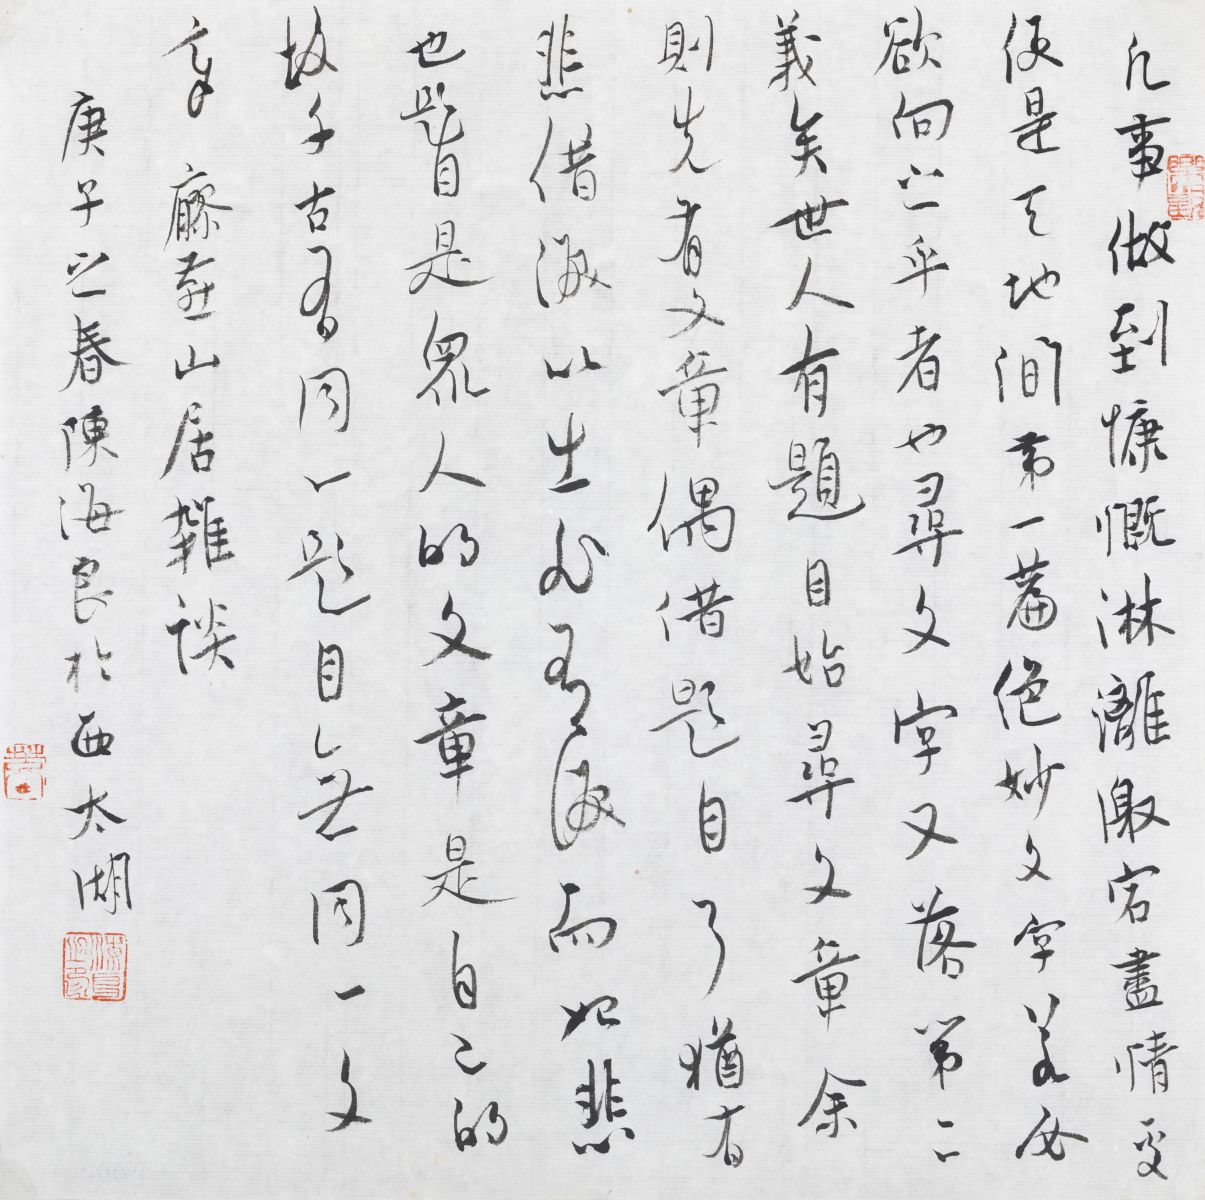 凡事做到慷慨淋灕激宕盡情處
便是天地間第一篇絕妙文字若必
欲向之乎者也尋文字又落第二
義矣世人有題目始尋文章余
則先有文章偶借題目了猶有
悲借淚以出非有淚而始悲
也題目是眾人的文章是自己的
故千古有同一題目無同一文
章 廖燕山居雜談
庚子之春陳海良於西太湖